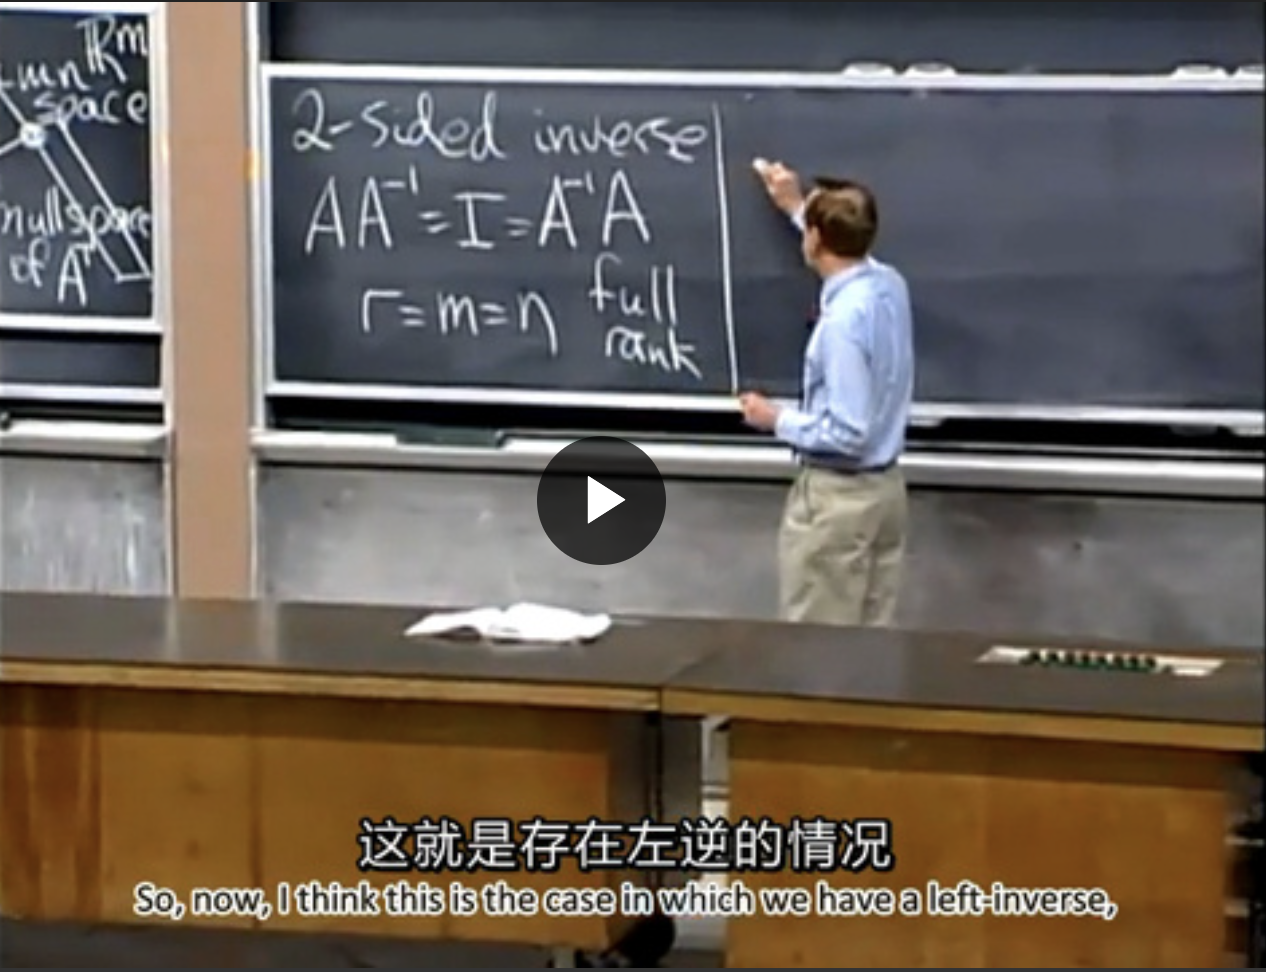 ℝᵐ
space
nullspace
of Aᵀ
2-sided inverse
AA⁻¹=I=A⁻¹A
r=m=n full
rank
这就是存在左逆的情况
So, now, I think this is the case in which we have a left-inverse,